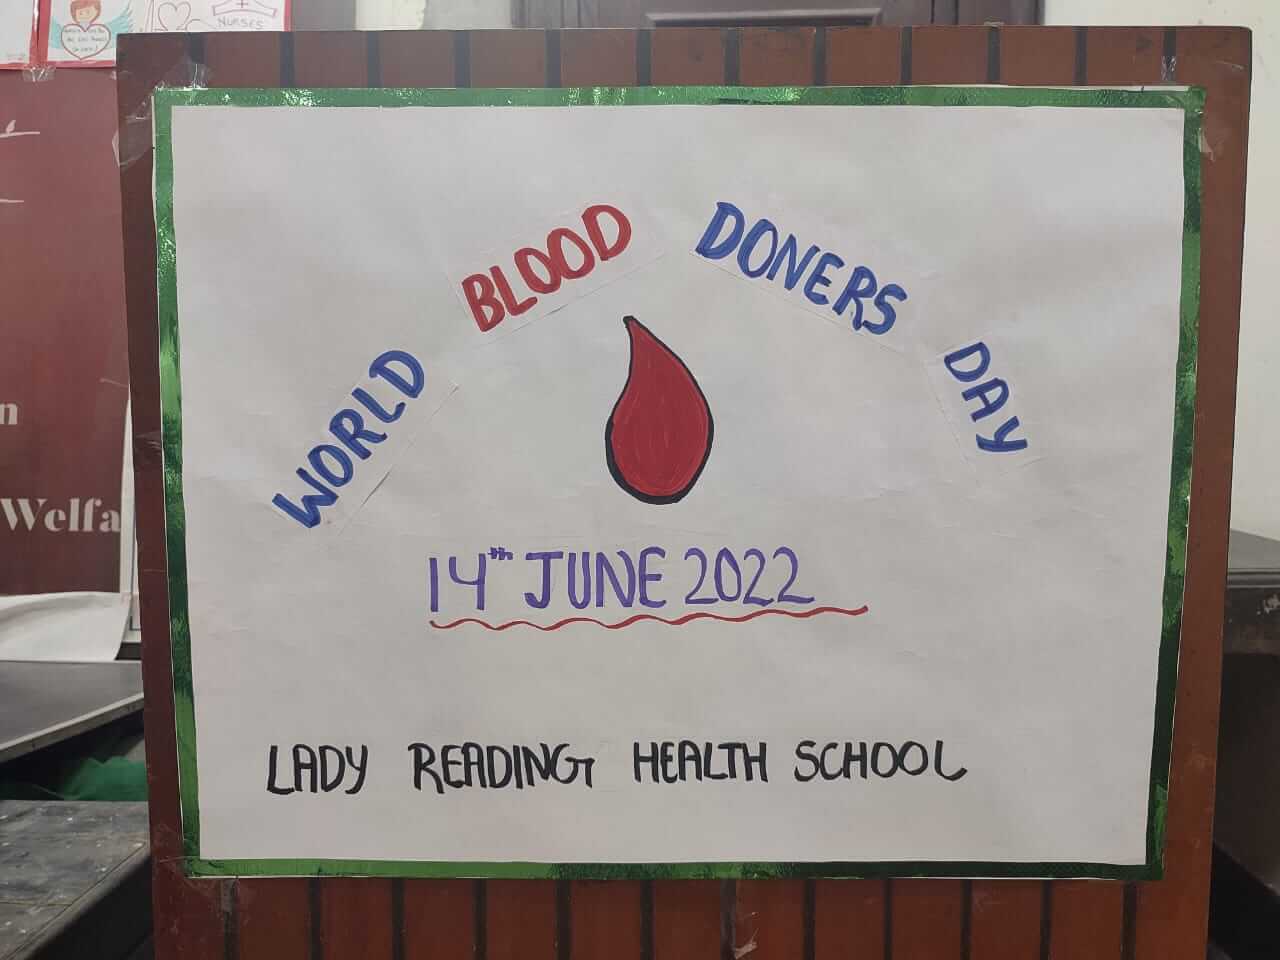 WORLD BLOOD DONERS DAY
14th JUNE 2022
LADY READING HEALTH SCHOOL
NURSES
Welfa